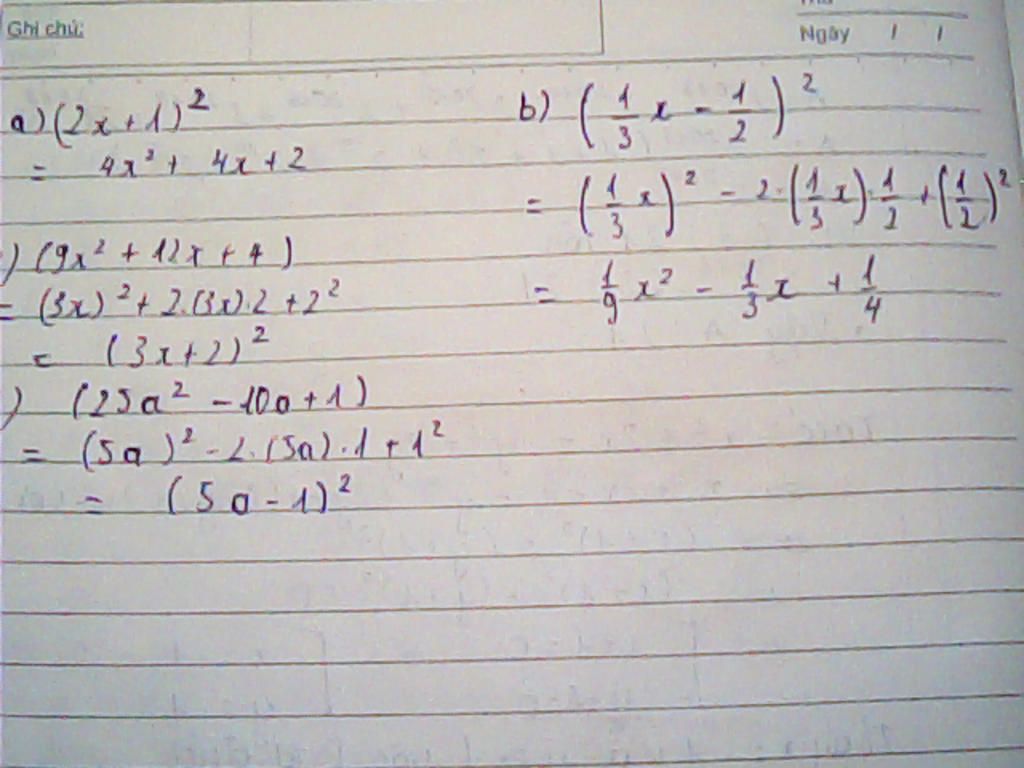 Ghi chú:
Ngày / /
a) (2x + 1)²
= 4x² + 4x + 2
b) (1/3 x - 1/2)²
= (1/3 x)² - 2·(1/3 x)·1/2 + (1/2)²
= 1/9 x² - 1/3 x + 1/4
) (9x² + 12x + 4)
= (3x)² + 2.(3x).2 + 2²
= (3x + 2)²
) (25a² - 10a + 1)
= (5a)² - 2.(5a).1 + 1²
= (5a - 1)²